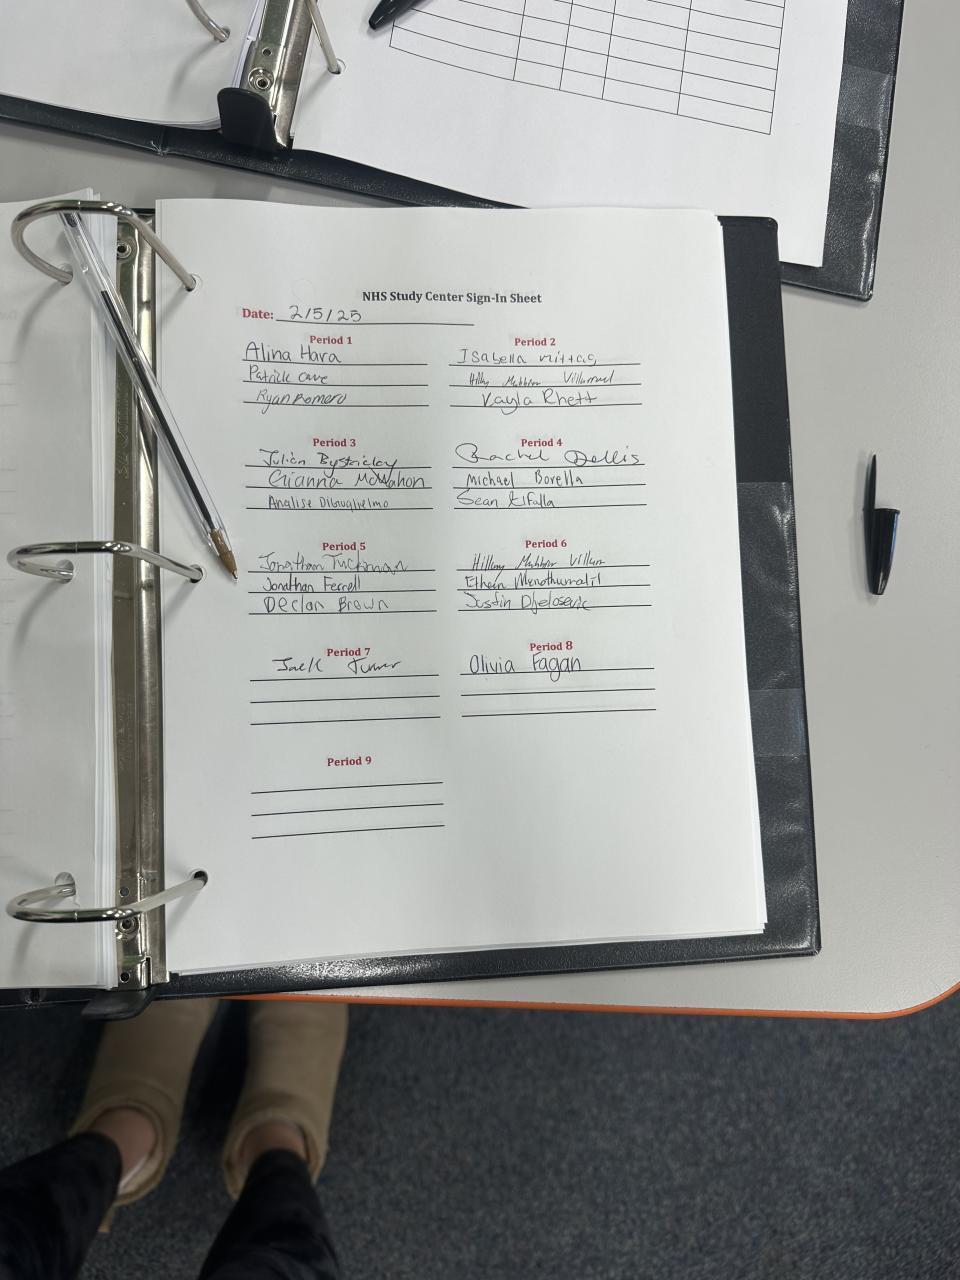 NHS Study Center Sign-In Sheet
Date: 2/5/25
Period 1
Alina Hara
Patrick Cave
Ryan Romero
Period 2
Isabella
Kayla Rhett
Period 3
Julian Bystricky
Gianna McMahon
Analise DiGuglielmo
Period 4
Rachel Dellis
Michael Borella
Sean Kifalla
Period 5
Jonathan Tuckman
Jonathan Ferrell
Declan Brown
Period 6
Ethan
Justin
Period 7
Jack Turner
Period 8
Olivia Fagan
Period 9